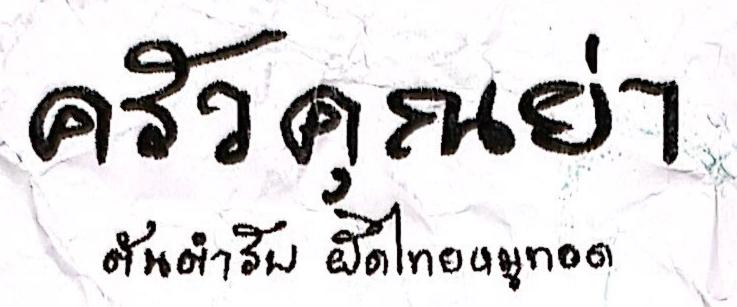 ครัวคุณย่า
ต้นตำรับ ผัดไทยหมูทอด